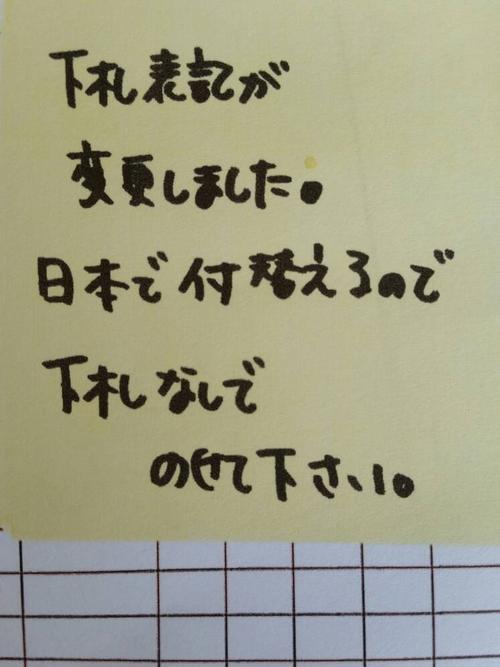 下札表記が
変更しました。
日本で付替えるので
下札なしで
のせて下さい。